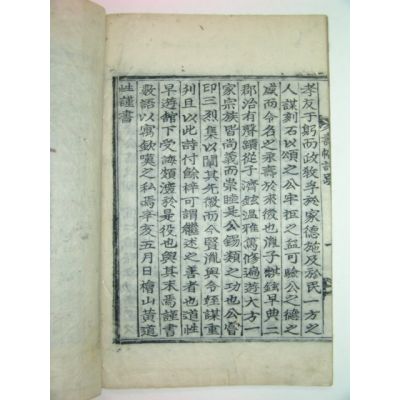 孝友于躬而政敎孚於家德施及於民一方之
人謀刻石以頌之公牢拒之益可驗公之德之
盛而令名之永壽於來後也胤子鉉早典二
郡治有聲蹟從子濟鉉溫雅篤修遍遊大方一
家宗族皆尙義而崇睦是公錫類之功也公嘗
印三烈集以闡其先徽而今賢胤與令姪謀重
刋且以此詩付餘梓可謂繼述之善者也道性
早遊館下受誨頗濃於是役也與其末焉謹書
數語以寓欽嘆之私焉辛亥五月日檜山黃道
性謹書